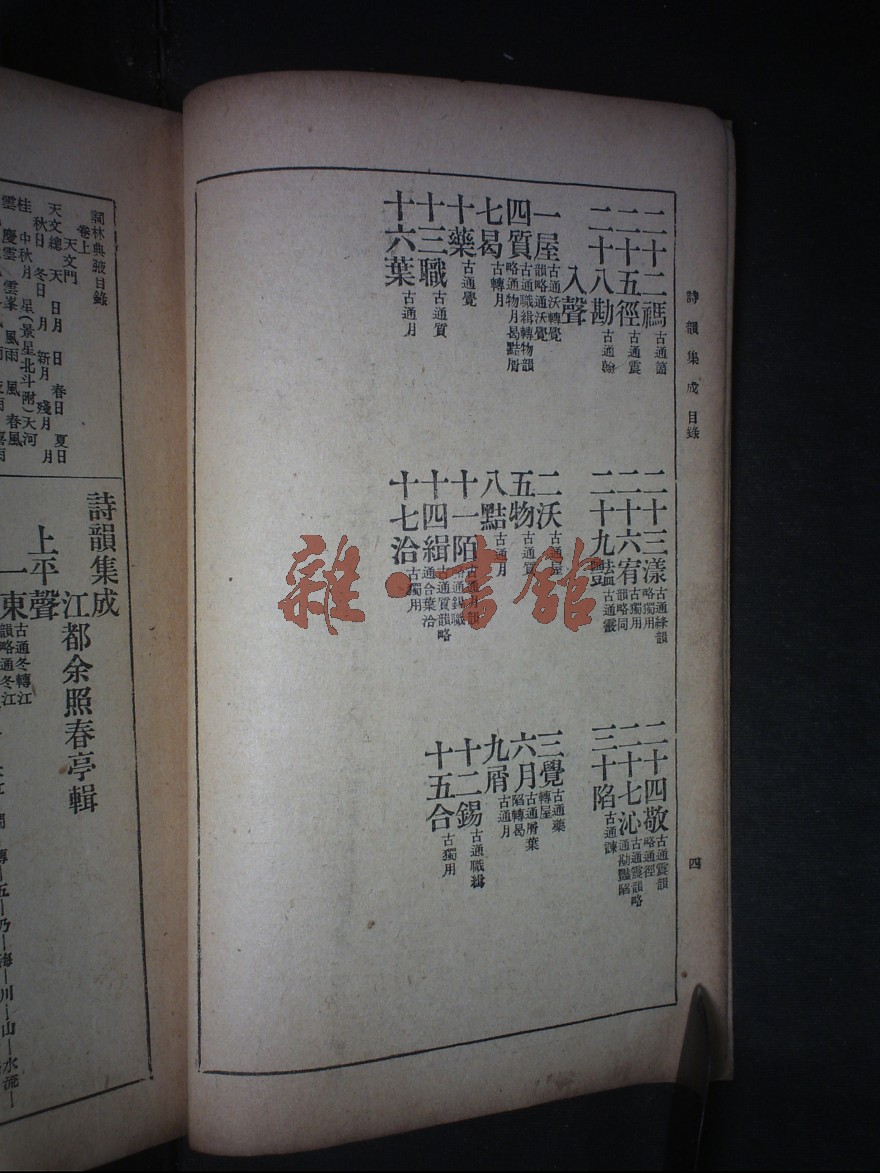 詩韻集成 目錄
四
二十二禡 古通箇
二十三漾 古通絳韻略獨用
二十四敬 古通震韻略通徑
二十五徑 古通震
二十六宥 古獨用韻略同
二十七沁 古通震韻略通勘豔陷
二十八勘 古通翰
二十九豔 古通霰
三十陷 古通諫
入聲
一屋 古通沃轉覺韻略通沃覺
二沃 古通屋
三覺 古通藥轉屋
四質 古通職緝轉物韻略通物月曷黠屑
五物 古通質
六月 古通屑葉陷轉曷
七曷 古轉月
八黠 古通月
九屑 古通月
十藥 古通覺
十一陌 古通月韻略通錫職
十二錫 古通職緝
十三職 古通質
十四緝 古通質韻略通合葉洽
十五合 古獨用
十六葉 古通月
十七洽 古獨用
雜·書館
詞林典腋目錄
卷上
天文門
天文總 天 日月 日 春日 夏日
秋日 冬日 月 新月 殘月
桂 中秋月 星(景星北斗附)天河
雲 慶雲 雲峯 風雨 風 春風
詩韻集成
江都余照春亭輯
上平聲
一東 古通冬轉江韻略通冬江